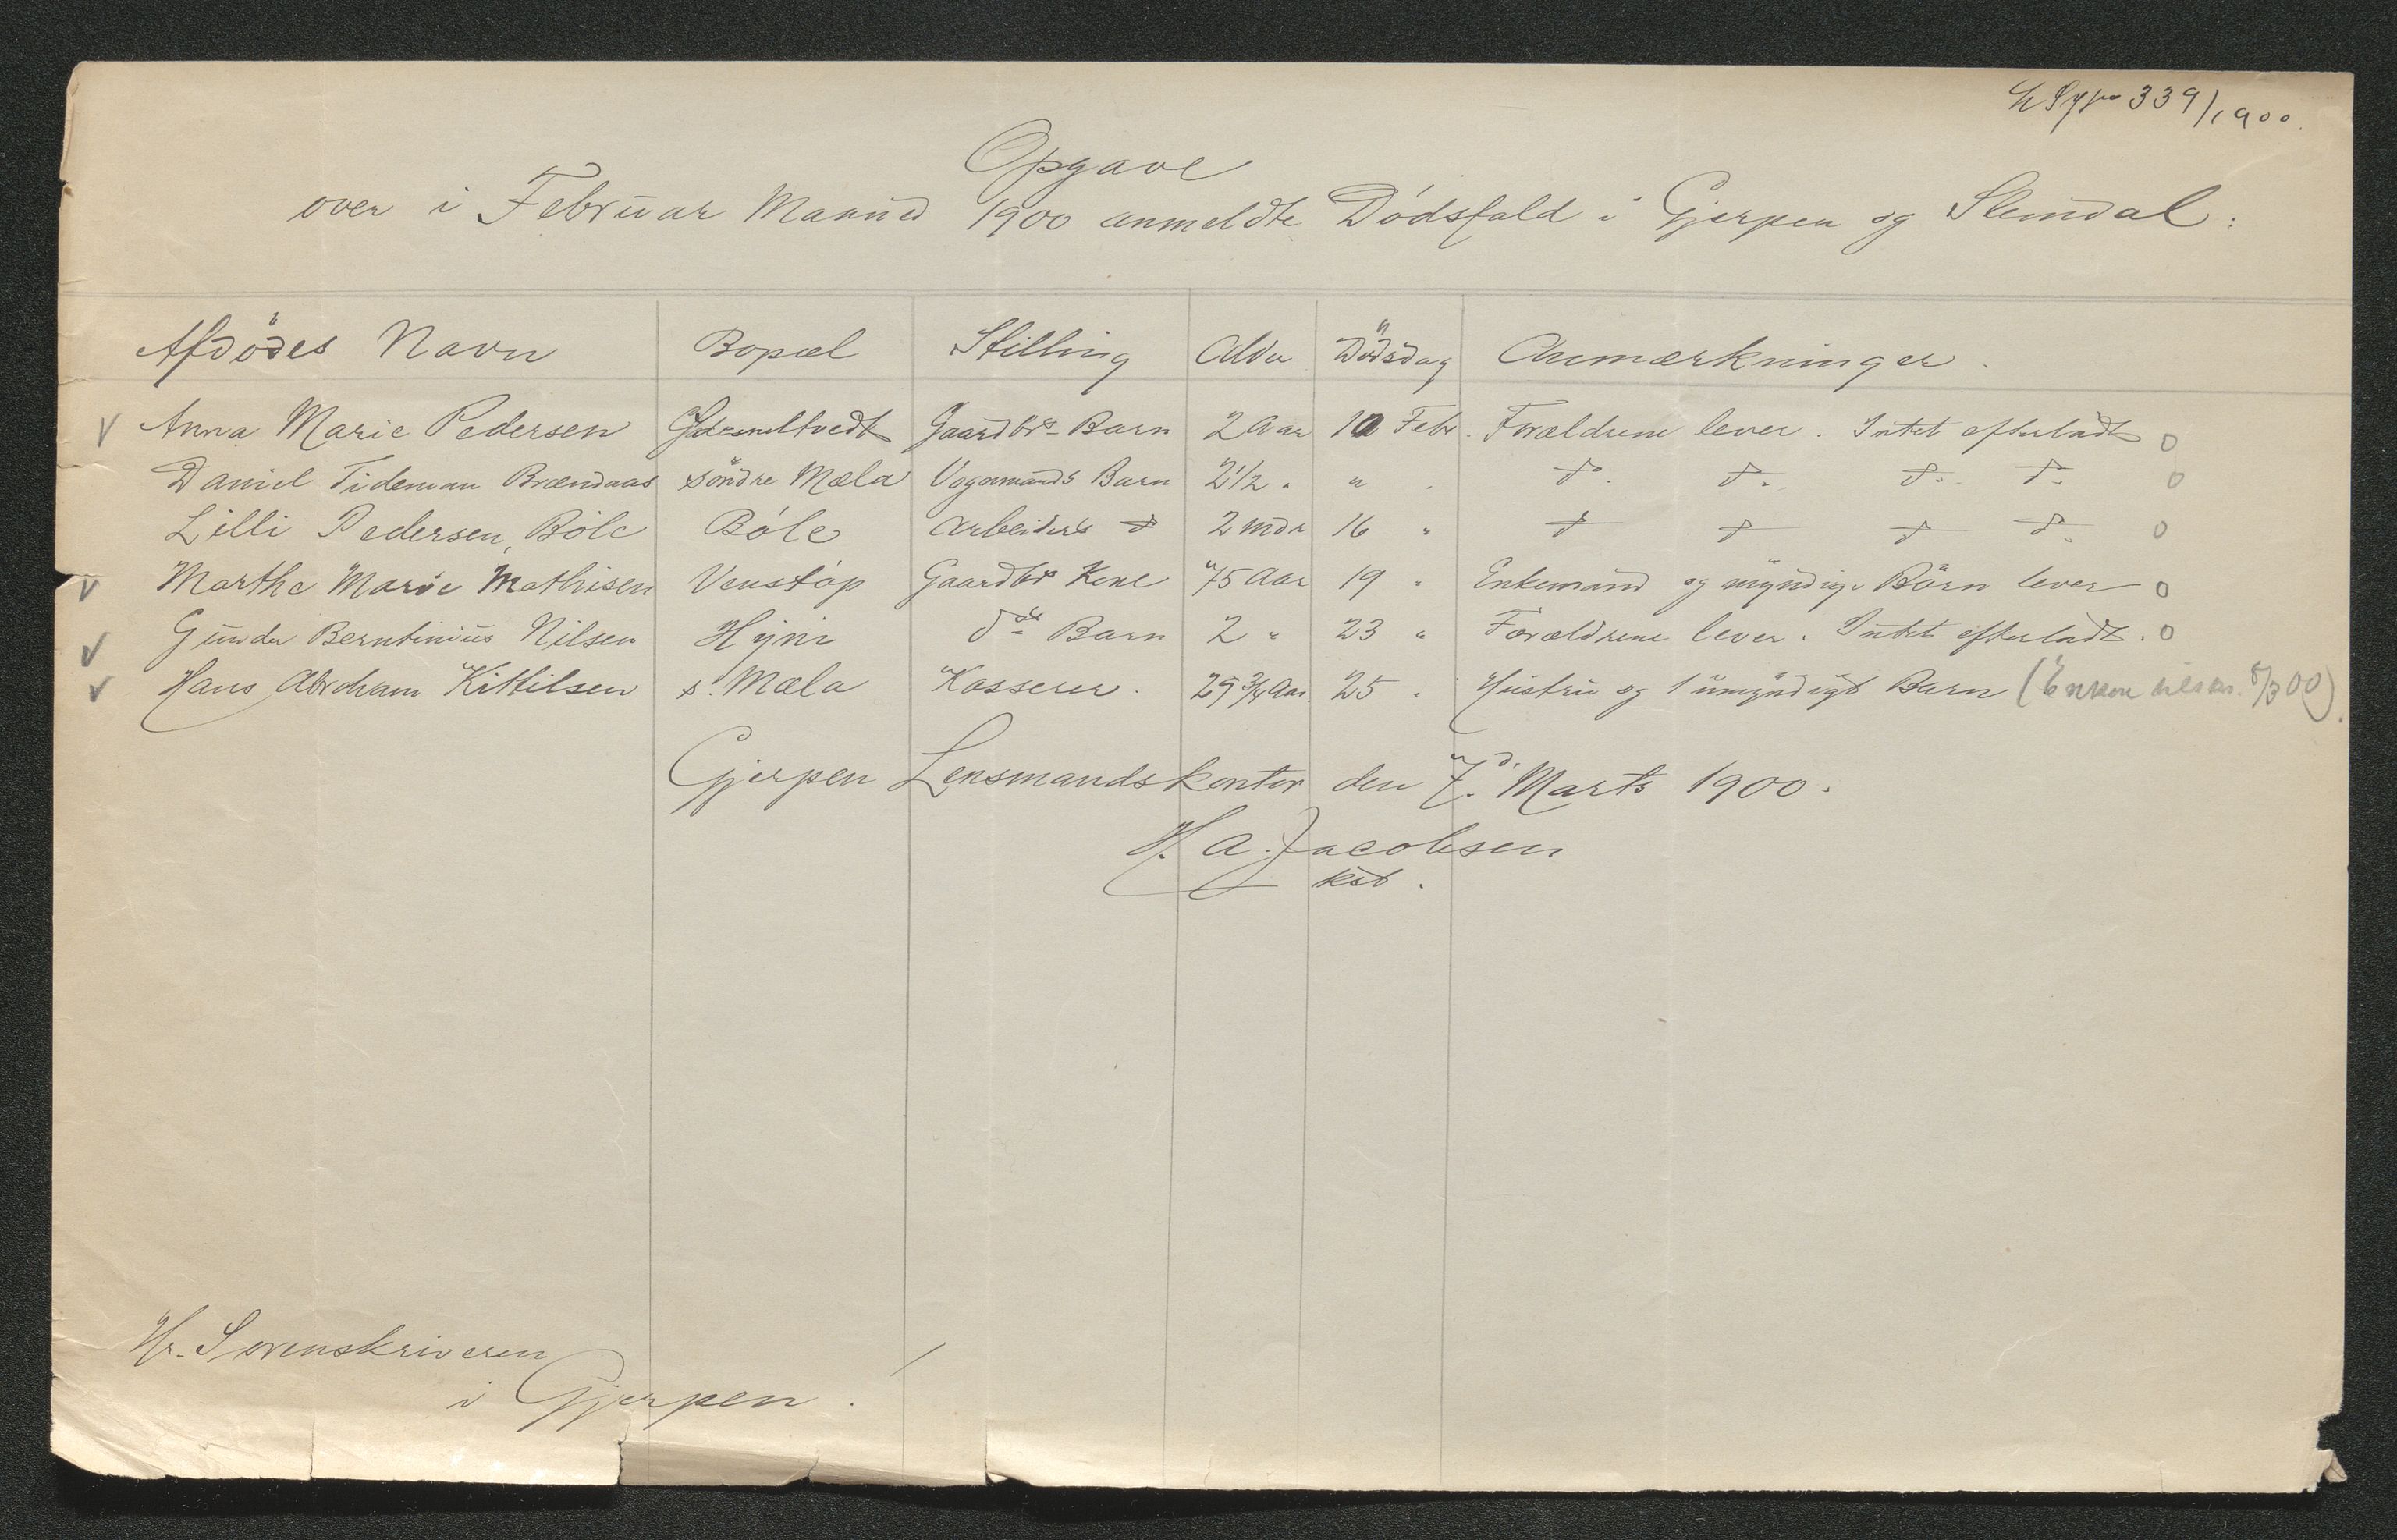 339/1900.
Opgave
over i Februar Maaned 1900 anmeldte Dödsfald i Gjerpen og Slemdal:
Afdödes Navn Bopæl Stilling Alder Dödsdag Anmærkninger.
Anna Marie Pedersen Gaardbrs Barn 2 Aar 10 Febr. Forældrene lever. Intet efterladt 0
Daniel Tideman Brændaas söndre Mæla Vognmands Barn 2 1/2 " " " do. do. do. do. 0
Lilli Pedersen, Böle Böle Arbeiders do 2 mdr 16 " do do do do. 0
Marthe Marie Mathisen Venstöp Gaardbrs Kone 75 Aar 19 " Enkemand og myndige Börn lever 0
Gunder Berntinius Nilsen Hyni do Barn 2 " 23 " Forældrene lever. Intet efterladt. 0
Hans Abraham Kittilsen s. Mæla Kasserer. 29 3/4 Aar. 25 " Hustru og 1 umyndigt Barn (Enken tilskr. 8/3 00).
Gjerpen Lensmandskontor den 7d. Marts 1900.
H. A. Jacobsen
kst.
Hr. Sorenskriveren
i Gjerpen.